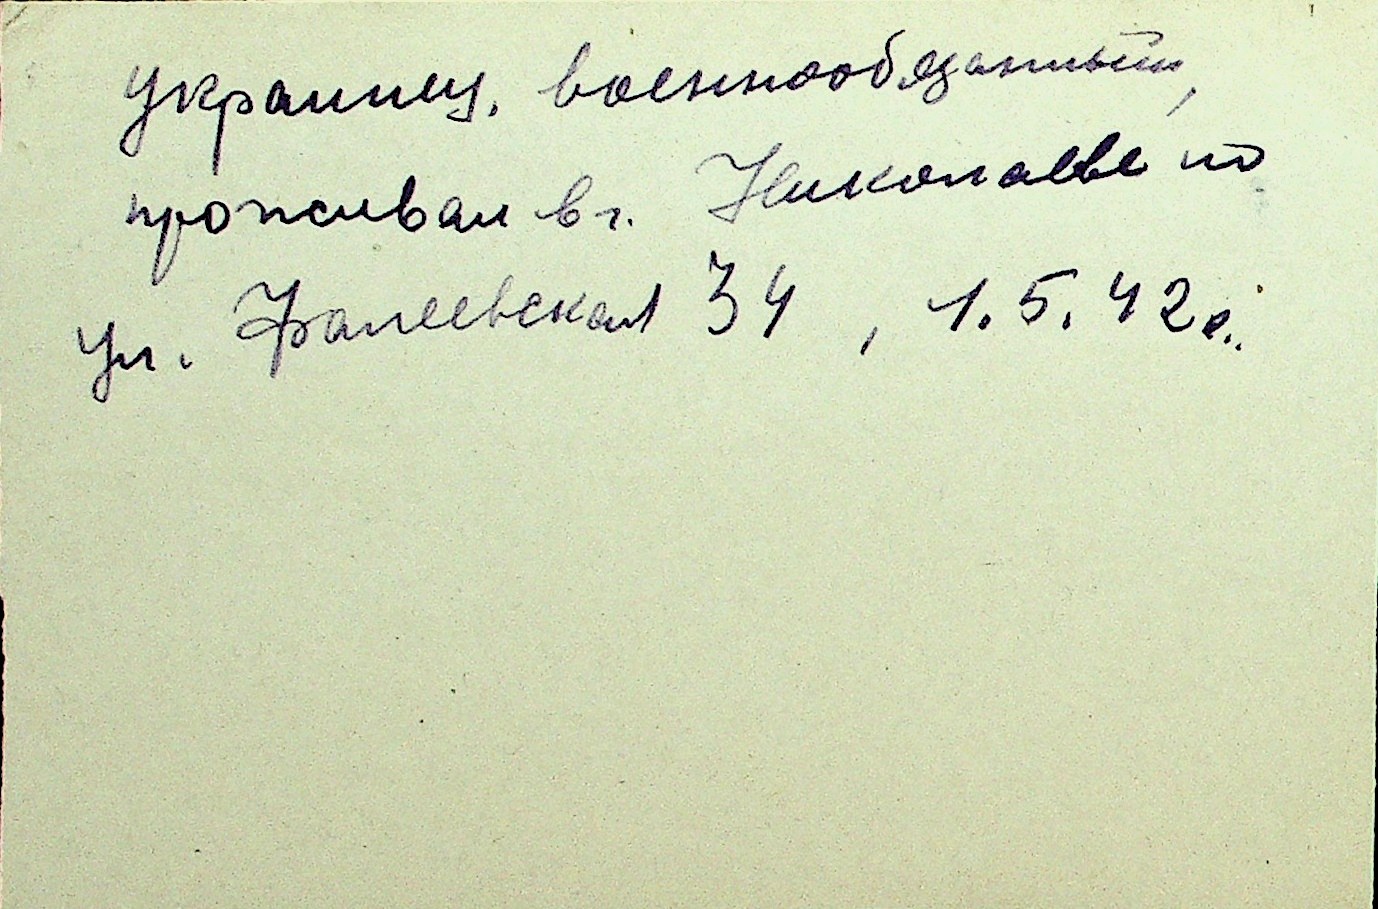 украинец, военнообязанный,
проживал в г. Николаеве по
ул. Фалеевская 34, 1.5.42 г.